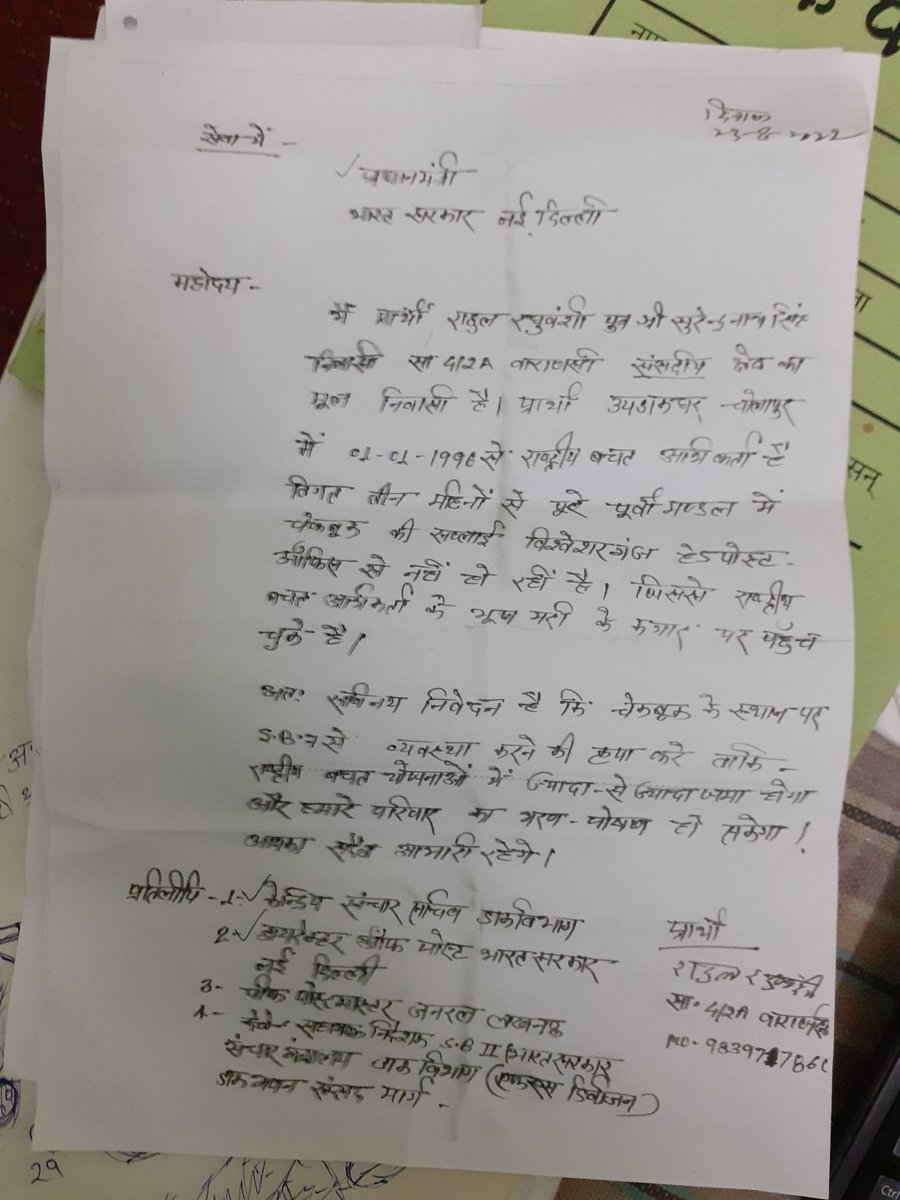 दिनांक
23-8-2022
सेवा में -
✓ प्रधानमंत्री
भारत सरकार नई दिल्ली
महोदय -
मैं प्रार्थी राहुल रघुवंशी पुत्र श्री सुरेन्द्र नाथ सिंह
निवासी सा 4/2A वाराणसी संसदीय क्षेत्र का
मूल निवासी है। प्रार्थी उपडाकघर चोलापुर
में 01-01-1996 से राष्ट्रीय बचत अभिकर्ता है
विगत तीन महिनों से पूरे पूर्वी मण्डल में
चेकबूक की सप्लाई विश्वेशरगंज हेड पोस्ट-
ऑफिस से नहीं हो रहीं है। जिससे राष्ट्रीय
बचत अभिकर्ता के भूखमरी के कगार पर पहुँच
चुके है।
अतः सविनय निवेदन है कि चेकबूक के स्थान पर
S.B.7 से व्यवस्था करने की कृपा करे ताकि -
राष्ट्रीय बचत योजनाओं में ज्यादा-से ज्यादा जमा होगा
और हमारे परिवार का भरण-पोषण हो सकेगा।
आपका सदैव आभारी रहेगे।
प्रतिलीपि - 1- ✓ केन्द्रिय संचार सचिव डाकविभाग
2- ✓ डायरेक्टर ऑफ पोस्ट भारत सरकार
नई दिल्ली
3- चीफ पोस्टमास्टर जनरल लखनऊ
4- सहायक निदेशक S.B II (भारत सरकार
संचार मंत्रालय डाक विभाग (एफएस डिवीजन)
डाक भवन संसद मार्ग -
प्रार्थी
राहुल रघुवंशी
सा. 4/2A वाराणसी
नाप
सन्
29
Ctrl